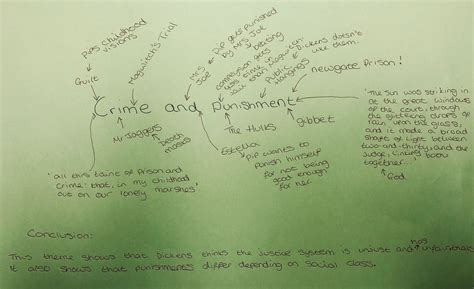 Pips childhood
visions
Guilt
Magwitch's Trial
Mrs
Joe
Pip gets punished
by Mrs Joe
beating
compeyson gets
less time in
jail than Magwitch.
Public
Hangings
Dickens doesn't
like them.
newgate Prison!
Crime and Punishment
Mr Jaggers
death
masks
The Hulks
gibbet
Estella
Pip wants to
punish himself
for not being
good enough
for her.
'all this taint of prison and
crime: that, in my childhood
out on our lonely marshes'
'The sun was striking in
at the great windows
of the court, through
the glittering drops of
rain upon the glass,
and it made a broad
shaft of light between
two-and-thirty, and the
judge, linking both
together...'
God
Conclusion:
This theme shows that Dickens thinks the justice system is unjust and has
It also shows that punishments differ depending on social class.